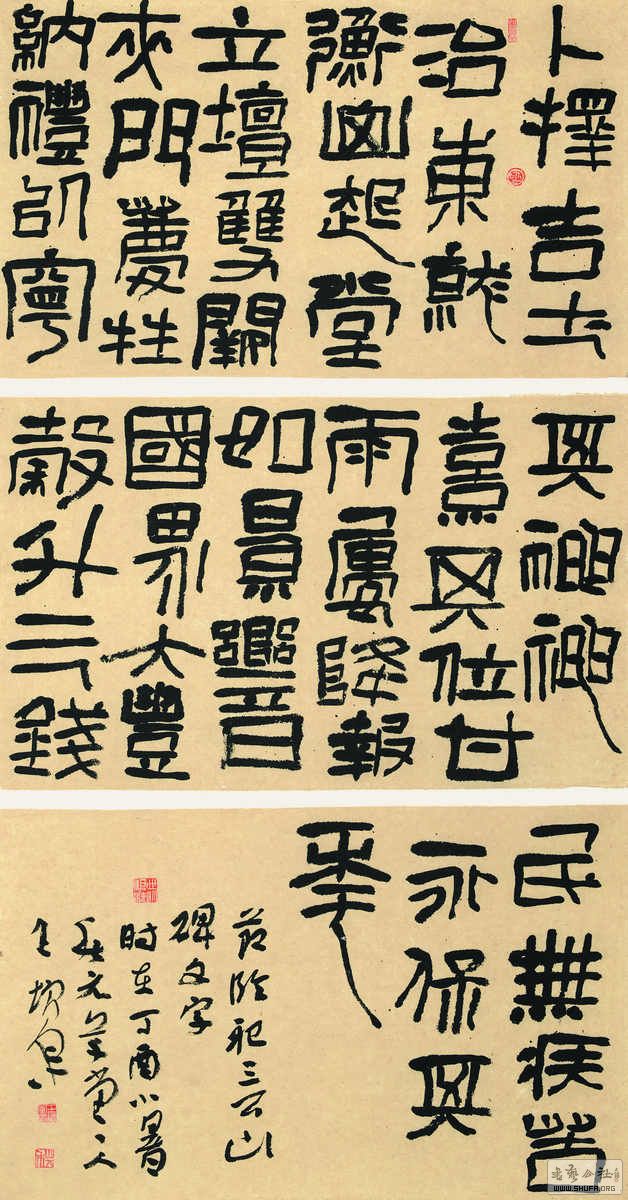 卜擇吉土
治東就
衡山起堂
立壇雙闕
夾門薦牲
納禮以寧
其神神
熹其位甘
雨屢降報
如景響
國界大豐
穀升三錢
民無疾苦
永保其
年
節臨祀三公山
碑文字
时在丁酉小暑
书艺公社
WWW.SHUFA.ORG